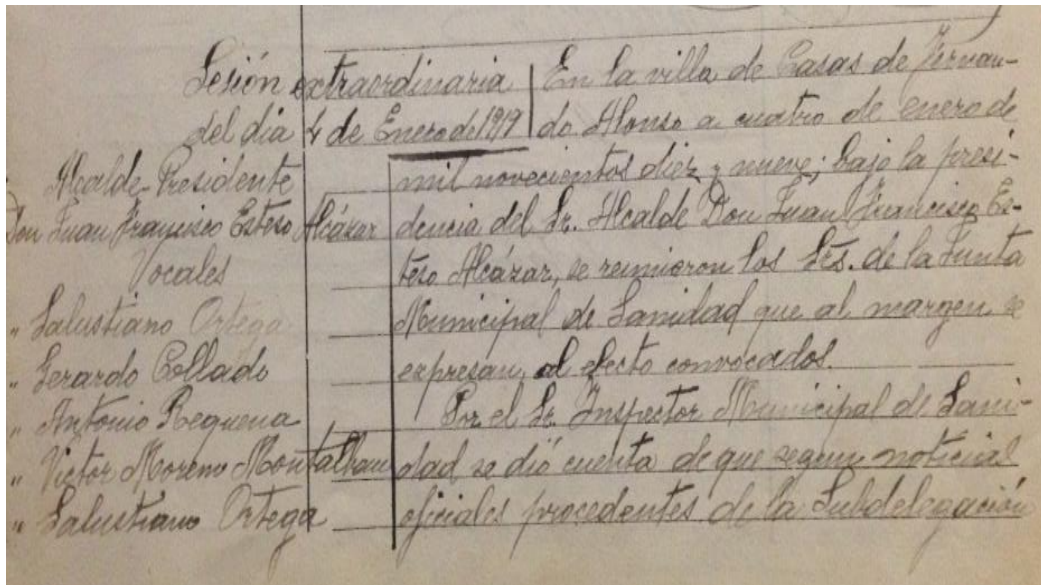 Sesión extraordinaria
del dia 4 de Enero de 1919
Alcalde-Presidente
Don Juan Francisco Esteso Alcázar
Vocales
" Salustiano Ortega
" Gerardo Collado
" Antonio Requena
" Victor Moreno Montalban
" Salustiano Ortega
En la villa de Casas de Fernan-
do Alonso a cuatro de enero de
mil novecientos diez y nueve; bajo la presi-
dencia del Sr. Alcalde Don Juan Francisco Es-
teso Alcázar, se reunieron los Srs. de la Junta
Municipal de Sanidad que al margen se
expresan, al efecto convocados.
Por el Sr. Inspector Municipal de Sani-
dad se dió cuenta de que segun noticias
oficiales procedentes de la Subdelegación